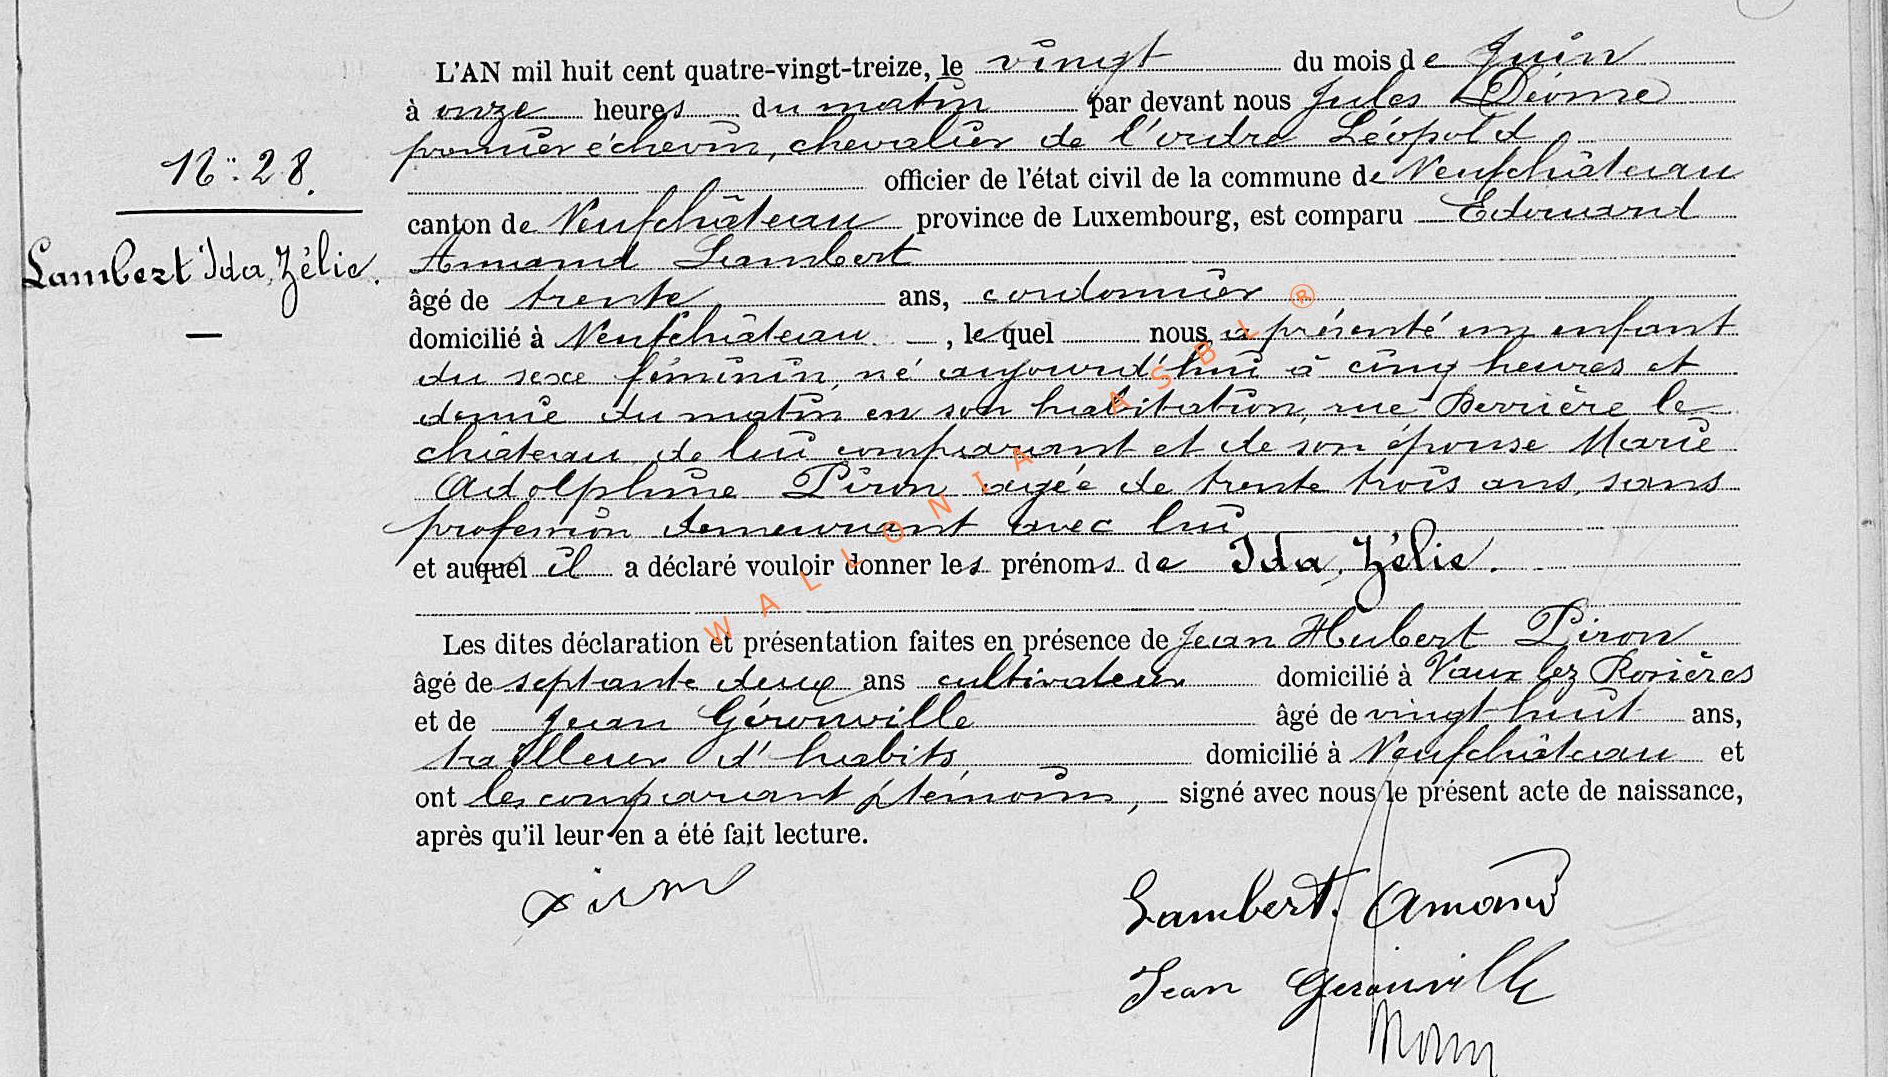 L'AN mil huit cent quatre-vingt-treize, le vingt du mois de Juin
à onze heures du matin par devant nous Jules
premier échevin, chevalier de l'ordre Léopold,
N°: 28.
officier de l'état civil de la commune de Neufchâteau
canton de Neufchâteau province de Luxembourg, est comparu Edouard
Lambert Ida, Zélie.
Amand Lambert
âgé de trente ans, cordonnier
domicilié à Neufchâteau, lequel nous a présenté un enfant
du sexe féminin, né aujourd'hui à cinq heures et
demie du matin en son habitation, rue Derrière le
château, de lui comparant et de son épouse Marie
Adolphine Piron agée de trente trois ans, sans
profession demeurant avec lui
et auquel il a déclaré vouloir donner les prénoms de Ida, Zélie.
Les dites déclaration et présentation faites en présence de Jean Hubert Piron
âgé de septante deux ans cultivateur domicilié à Vaux lez Rosières
et de Jean Géronville âgé de vingt huit ans,
tailleur d'habits, domicilié à Neufchâteau et
ont les comparant & témoins, signé avec nous le présent acte de naissance,
après qu'il leur en a été fait lecture.
Piron
Lambert. Amand
Jean Geronville
WALLONIA ASBL ®